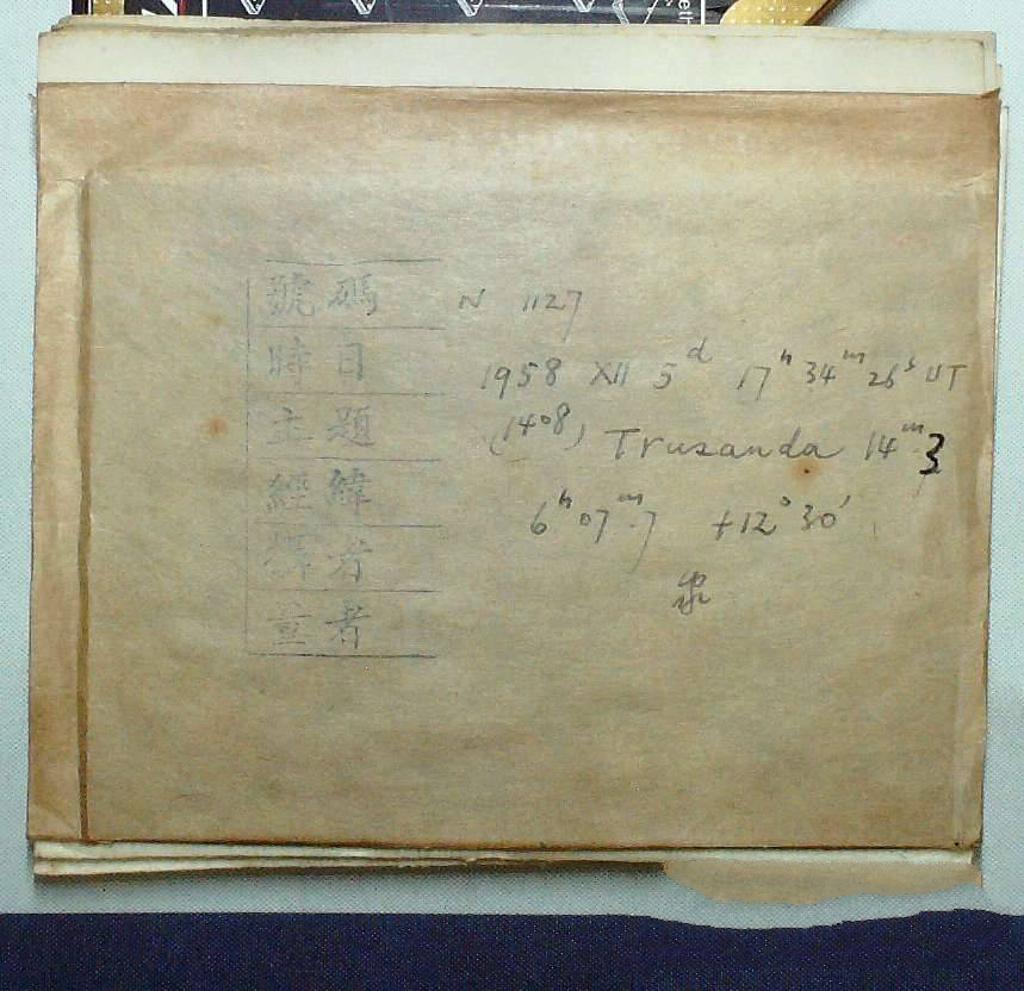 號碼 N 1127
時日 1958 XII 5ᵈ 17ʰ 34ᵐ 26ˢ UT
主題 (1408) Trusanda 14ᵐ.3
經緯 6ʰ 07ᵐ.7 +12° 30'
攝者
量者